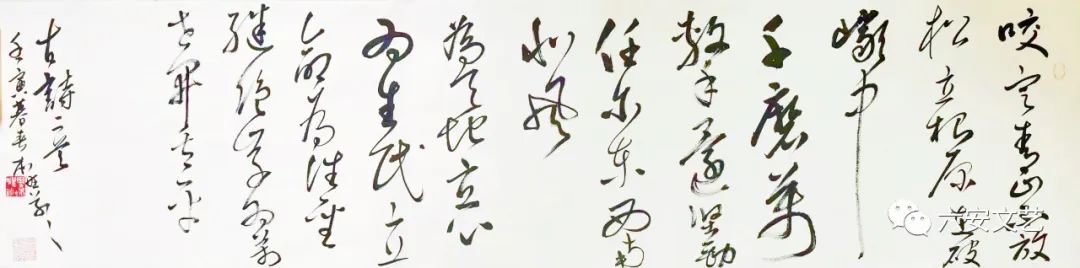 咬定青山不放
松立根原在破
巖中
千磨萬
擊還坚劲
任尔东西南
北风
為天地立心
为生民立
命为往圣
继绝学为万
世开太平
古詩二首
壬寅暮春
六安文艺